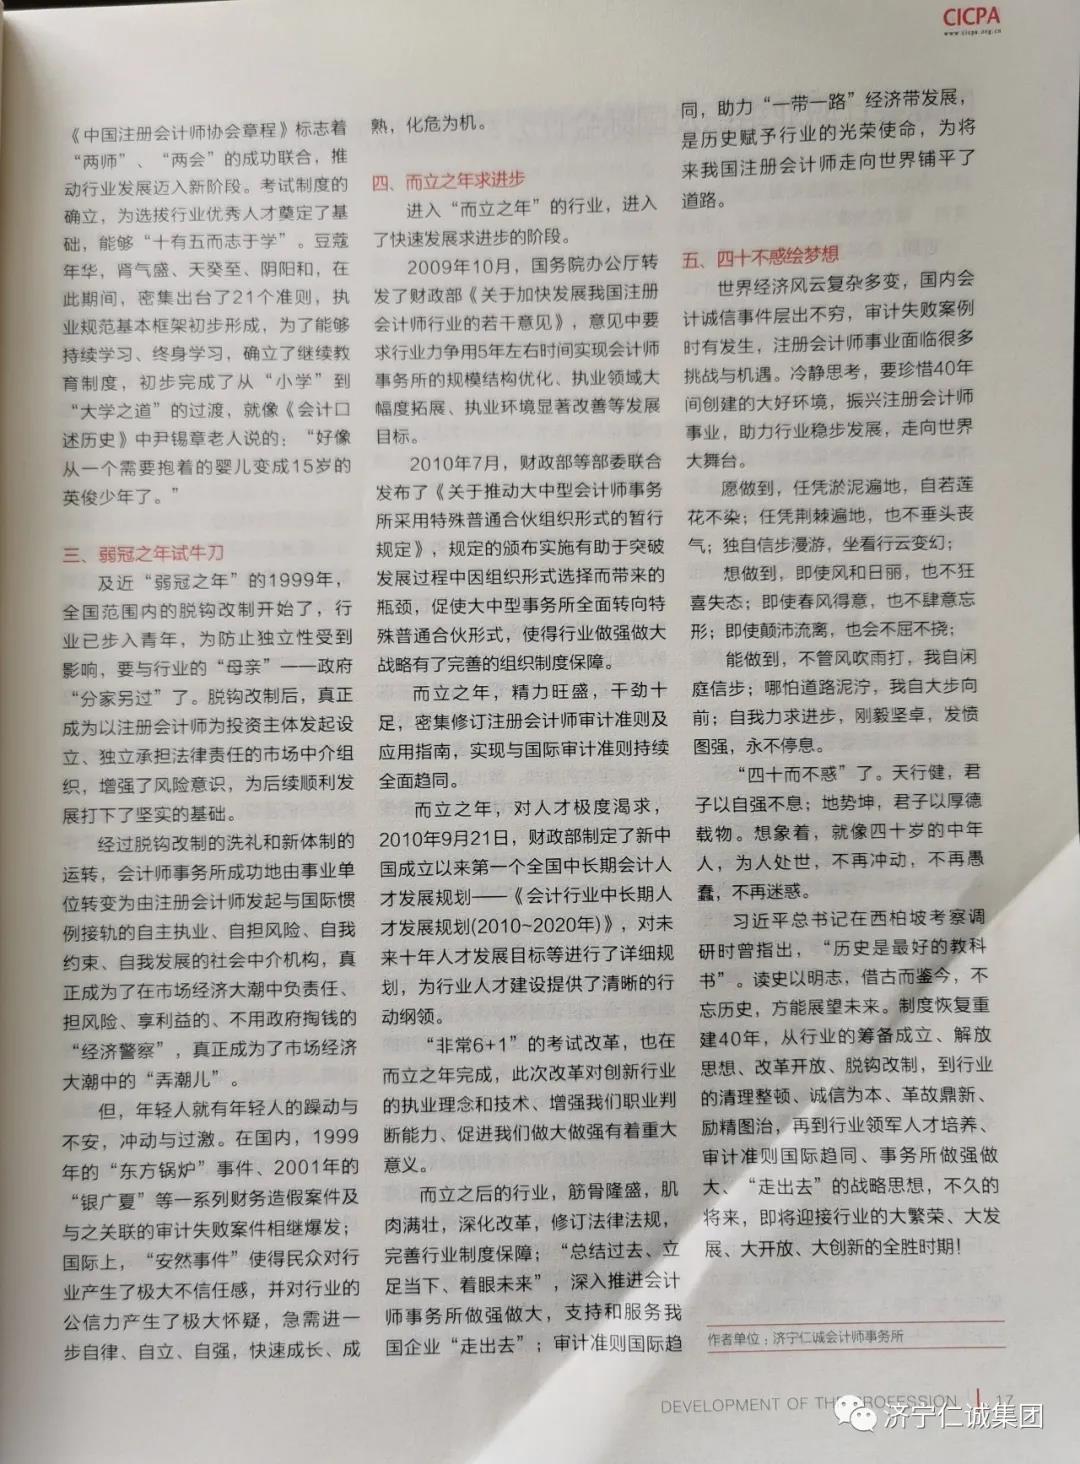 CICPA
www.cicpa.org.cn
《中国注册会计师协会章程》标志着
“两师”、“两会”的成功联合，推
动行业发展迈入新阶段。考试制度的
确立，为选拔行业优秀人才奠定了基
础，能够“十有五而志于学”。豆蔻
年华，肾气盛、天癸至、阴阳和，在
此期间，密集出台了21个准则，执
业规范基本框架初步形成，为了能够
持续学习、终身学习，确立了继续教
育制度，初步完成了从“小学”到
“大学之道”的过渡，就像《会计口
述历史》中尹锡章老人说的：“好像
从一个需要抱着的婴儿变成15岁的
英俊少年了。”
三、弱冠之年试牛刀
及近“弱冠之年”的1999年，
全国范围内的脱钩改制开始了，行
业已步入青年，为防止独立性受到
影响，要与行业的“母亲”——政府
“分家另过”了。脱钩改制后，真正
成为以注册会计师为投资主体发起设
立、独立承担法律责任的市场中介组
织，增强了风险意识，为后续顺利发
展打下了坚实的基础。
经过脱钩改制的洗礼和新体制的
运转，会计师事务所成功地由事业单
位转变为由注册会计师发起与国际惯
例接轨的自主执业、自担风险、自我
约束、自我发展的社会中介机构，真
正成为了在市场经济大潮中负责任、
担风险、享利益的、不用政府掏钱的
“经济警察”，真正成为了市场经济
大潮中的“弄潮儿”。
但，年轻人就有年轻人的躁动与
不安，冲动与过激。在国内，1999
年的“东方锅炉”事件、2001年的
“银广夏”等一系列财务造假案件及
与之关联的审计失败案件相继爆发；
国际上，“安然事件”使得民众对行
业产生了极大不信任感，并对行业的
公信力产生了极大怀疑，急需进一
步自律、自立、自强，快速成长、成
熟，化危为机。
四、而立之年求进步
进入“而立之年”的行业，进入
了快速发展求进步的阶段。
2009年10月，国务院办公厅转
发了财政部《关于加快发展我国注册
会计师行业的若干意见》，意见中要
求行业力争用5年左右时间实现会计师
事务所的规模结构优化、执业领域大
幅度拓展、执业环境显著改善等发展
目标。
2010年7月，财政部等部委联合
发布了《关于推动大中型会计师事务
所采用特殊普通合伙组织形式的暂行
规定》，规定的颁布实施有助于突破
发展过程中因组织形式选择而带来的
瓶颈，促使大中型事务所全面转向特
殊普通合伙形式，使得行业做强做大
战略有了完善的组织制度保障。
而立之年，精力旺盛，干劲十
足，密集修订注册会计师审计准则及
应用指南，实现与国际审计准则持续
全面趋同。
而立之年，对人才极度渴求，
2010年9月21日，财政部制定了新中
国成立以来第一个全国中长期会计人
才发展规划——《会计行业中长期人
才发展规划(2010~2020年)》，对未
来十年人才发展目标等进行了详细规
划，为行业人才建设提供了清晰的行
动纲领。
“非常6+1”的考试改革，也在
而立之年完成，此次改革对创新行业
的执业理念和技术、增强我们职业判
断能力、促进我们做大做强有着重大
意义。
而立之后的行业，筋骨隆盛，肌
肉满壮，深化改革，修订法律法规，
完善行业制度保障；“总结过去、立
足当下、着眼未来”，深入推进会计
师事务所做强做大，支持和服务我
国企业“走出去”；审计准则国际趋
同，助力“一带一路”经济带发展，
是历史赋予行业的光荣使命，为将
来我国注册会计师走向世界铺平了
道路。
五、四十不惑绘梦想
世界经济风云复杂多变，国内会
计诚信事件层出不穷，审计失败案例
时有发生，注册会计师事业面临很多
挑战与机遇。冷静思考，要珍惜40年
间创建的大好环境，振兴注册会计师
事业，助力行业稳步发展，走向世界
大舞台。
愿做到，任凭淤泥遍地，自若莲
花不染；任凭荆棘遍地，也不垂头丧
气；独自信步漫游，坐看行云变幻；
想做到，即使风和日丽，也不狂
喜失态；即使春风得意，也不肆意忘
形；即使颠沛流离，也会不屈不挠；
能做到，不管风吹雨打，我自闲
庭信步；哪怕道路泥泞，我自大步向
前；自我力求进步，刚毅坚卓，发愤
图强，永不停息。
“四十而不惑”了。天行健，君
子以自强不息；地势坤，君子以厚德
载物。想象着，就像四十岁的中年
人，为人处世，不再冲动，不再愚
蠢，不再迷惑。
习近平总书记在西柏坡考察调
研时曾指出，“历史是最好的教科
书”。读史以明志，借古而鉴今，不
忘历史，方能展望未来。制度恢复重
建40年，从行业的筹备成立、解放
思想、改革开放、脱钩改制，到行业
的清理整顿、诚信为本、革故鼎新、
励精图治，再到行业领军人才培养、
审计准则国际趋同、事务所做强做
大、“走出去”的战略思想，不久的
将来，即将迎接行业的大繁荣、大发
展、大开放、大创新的全胜时期！
作者单位：济宁仁诚会计师事务所
DEVELOPMENT OF THE PROFESSION 17
济宁仁诚集团